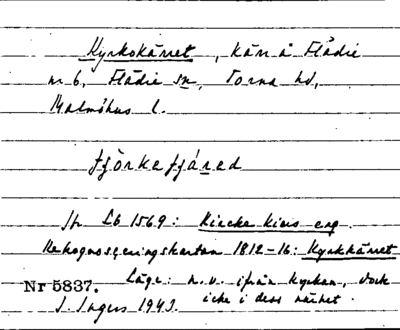 Kyrkokärret, kärr å Flädie
nr 6, Flädie sn, Torna hd,
Malmöhus l.
Jfr Lb 1569: Kircke Kius eng
Rekognosceringskartan 1812-16: Kyrkkärret
Läge: n.v. ifrån kyrkan, dock
icke i dess närhet.
Nr 5837.
I. Ingers 1943.